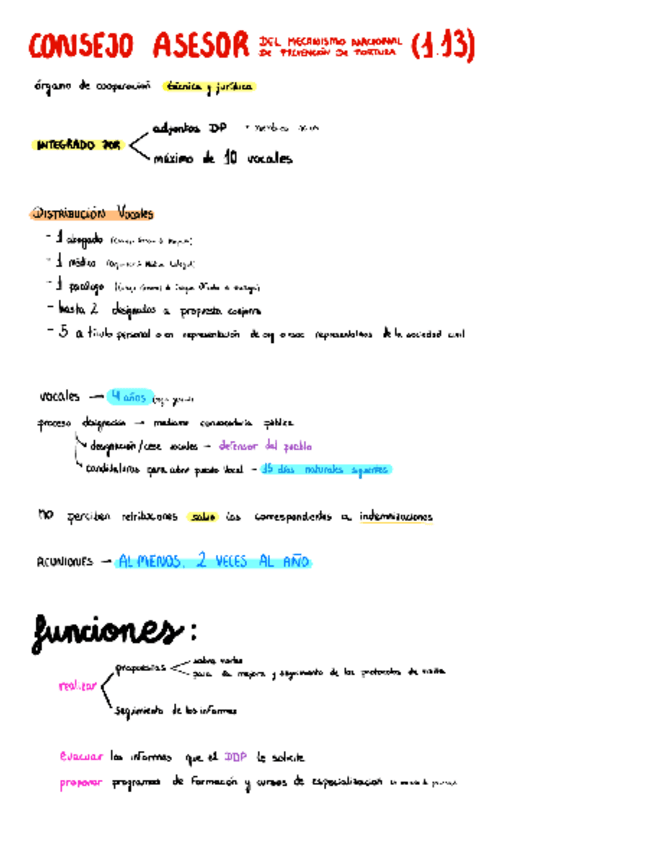 CONSEJO ASESOR DEL MECANISMO NACIONAL DE PREVENCIÓN DE TORTURA (1.13)
órgano de cooperación técnica y jurídica
INTEGRADO POR
adjuntos DP
máximo de 10 vocales
DISTRIBUCIÓN Vocales
- 1 abogado
- 1 médico
- 1 psicólogo
- hasta 2 designados a propuesta conjunta
- 5 a título personal o en representación de org o asoc representativas de la sociedad civil
vocales → 4 años
proceso designación → mediante convocatoria pública
designación/cese vocales → defensor del pueblo
candidaturas para cubrir puesto vocal → 15 días naturales siguientes
no perciben retribuciones salvo las correspondientes a indemnizaciones
REUNIONES → AL MENOS. 2 VECES AL AÑO
funciones:
realizar
propuestas
sobre visitas
para la mejora y seguimiento de los protocolos de visita
seguimiento de los informes
evacuar los informes que el DDP le solicite
proponer programas de formación y cursos de especialización